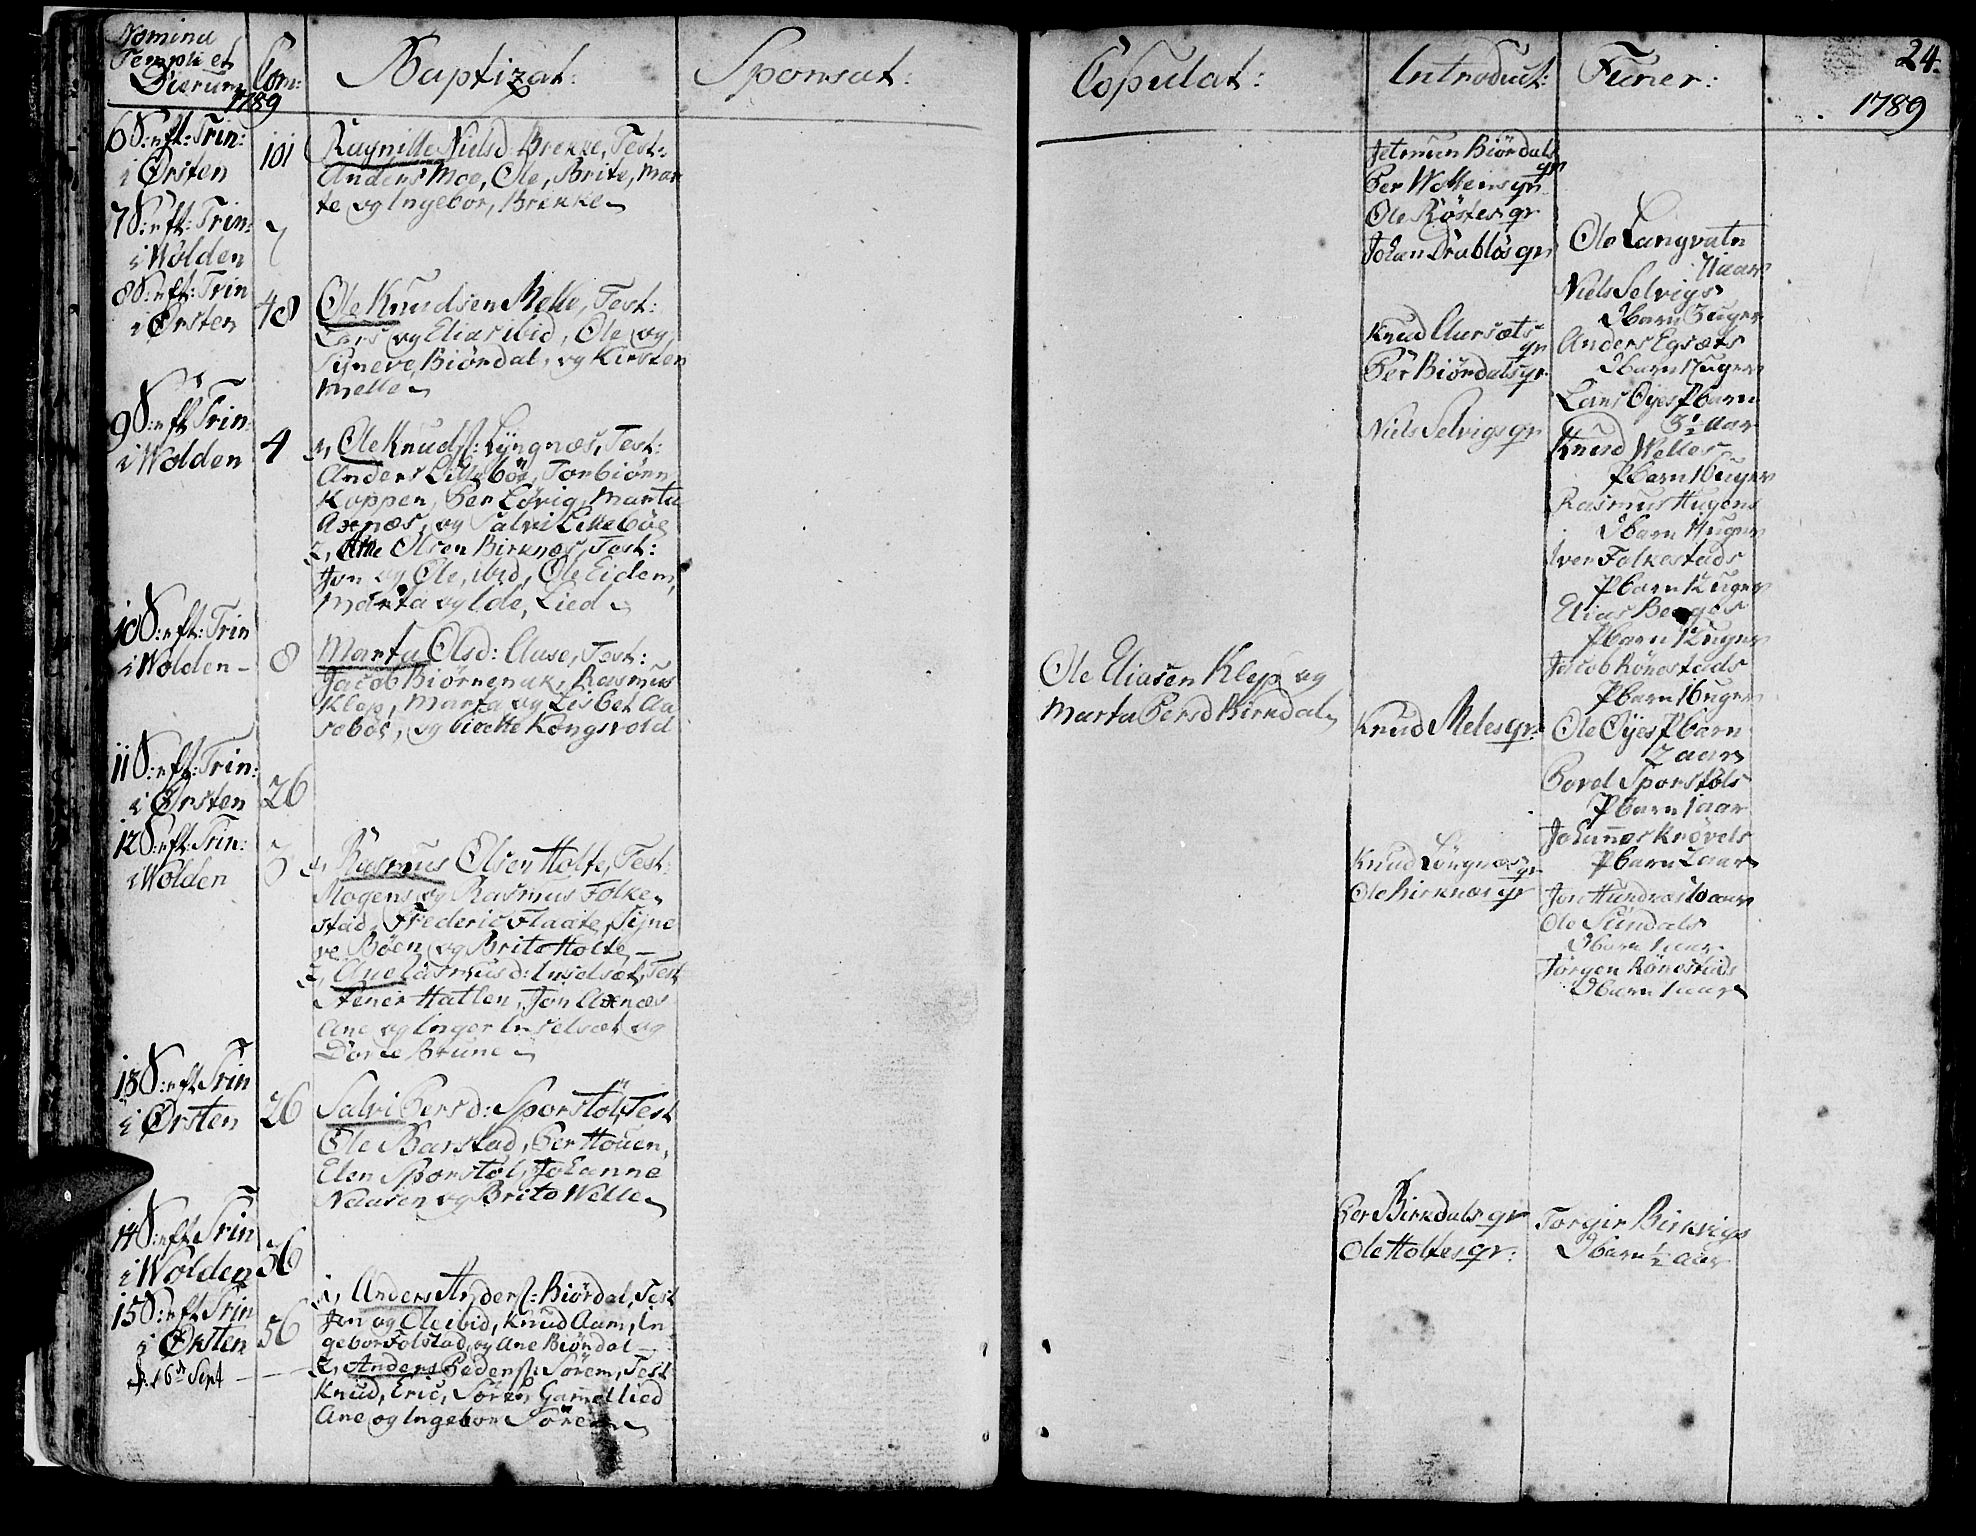 Nomina
Templi et
Dierum
1789
Com:
Baptizat:
Sponsat:
6 S: eft: Trin:
i Ørsten
101
Ragnilde Nielsd Brekke, Test:
Anders Moe, Ole, Brite, Mar
te og Ingebor, Brekke
7 S: eft: Trin:
i Wolden
7
8 S: eft: Trin
i Ørsten
48
Ole Knudsen Melle, Test:
Lars og Elias ibid, Ole og
Syneve Biørdal, og Kirsten
Melle
9 S: eft Trin:
i Wolden
4
1, Ole Knuds: Lyngnæs, Test:
Anders Lillebøe, Torbiørn
Koppen, Per Løvig, Marta
Axnæs, og Salvi Lillebøe
2, Olsen Birknæs, Test:
Jon og Ole, ibid, Ole Eidem,
Marta og Ide, Lied
10 S: eft: Trin
i Wolden
8
Marta Olsd: Aase, Test:
Jacob Biørnenak, Rasmus
Klep, Marta og Lisbet Aa
sebøe, og Kongsvold
11 S: eft: Trin:
i Ørsten
26
12 S: eft: Trin:
i Wolden
3
1, Rasmus Olsen Holte, Test:
Mogens og Rasmus Folke
stad, Frederic Flaate, Syne
ve Bøen og Brite Holte
2, Ane Rasmusd: Inselset, Test
Stener Hatlen, Jon Axnæs
Ane og Inger Inselset og
Dorte Brune
13 S: eft Trin
i Ørsten
26
Salvi Persd: Sporstøl, Test
Ole Barstad, Per Houen,
Elen Sporstøl, Johanne
Naasen og Brite Welle
14 S: eft Trin
i Wolden
36
15 S: eft Trin
i Ørsten
56
1, Anders Anders: Biørdal, Test
Jon og Ole ibid, Knud Aam, In
gebor Folstad, og Ane Biørdal
d. 16de Sept
2, Anders Peders: Sørem, Test
Knud, Eric, Søren Gammel Lied
Ane og Ingebor Sørem
Copulat:
Introduct:
Funer:
24.
1789
Ole Eliasen Klep og
Marta Persd Birkdal
Jetmun Biørdals
gr
Per Wolleins gr
Ole Røstes gr
Johan Drabløs gr
Knud Aursæts
gr
Per Biørdals gr
Niels Selvigs gr
Knud Meles gr:
Knud Løngnæs
gr
Ole Birknæs gr
Per Birkdals gr
Ole Holtes gr:
Ole Langvatn
71 aar
Niels Selvigs
Dbarn 3 uger
Anders Egsæts
Dbarn 17 uger
Lars Øyes Pbarn
3 1/2 aar
Knud Welles
Pbarn 16 uger
Rasmus Hugens
Dbarn 14 uger
Iver Folkestads
Pbarn 12 uger
Elias
Pbarn 12 uger
Jacob Rønestads
Pbarn 16 uger
Ole Øyes Pbarn
2 aar
Povel Sporstøls
Pbarn 1 aar
Johannes Krøvels
Pbarn 2 aar
Jon Hundnæs 10 aar
Ole Sundals
Dbarn 1 aar
Jørgen Rønestads
Dbarn 1 aar
Torgir Birkvigs
Dbarn 1/2 aar